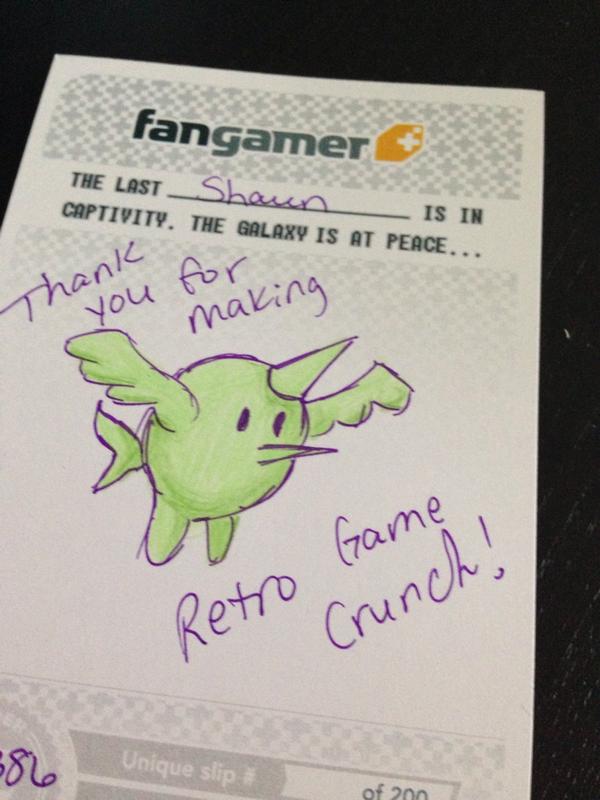 fangamer
THE LAST Shaun IS IN
CAPTIVITY. THE GALAXY IS AT PEACE...
Thank
you for
making
Retro Game
Crunch!
386
Unique slip #
of 200